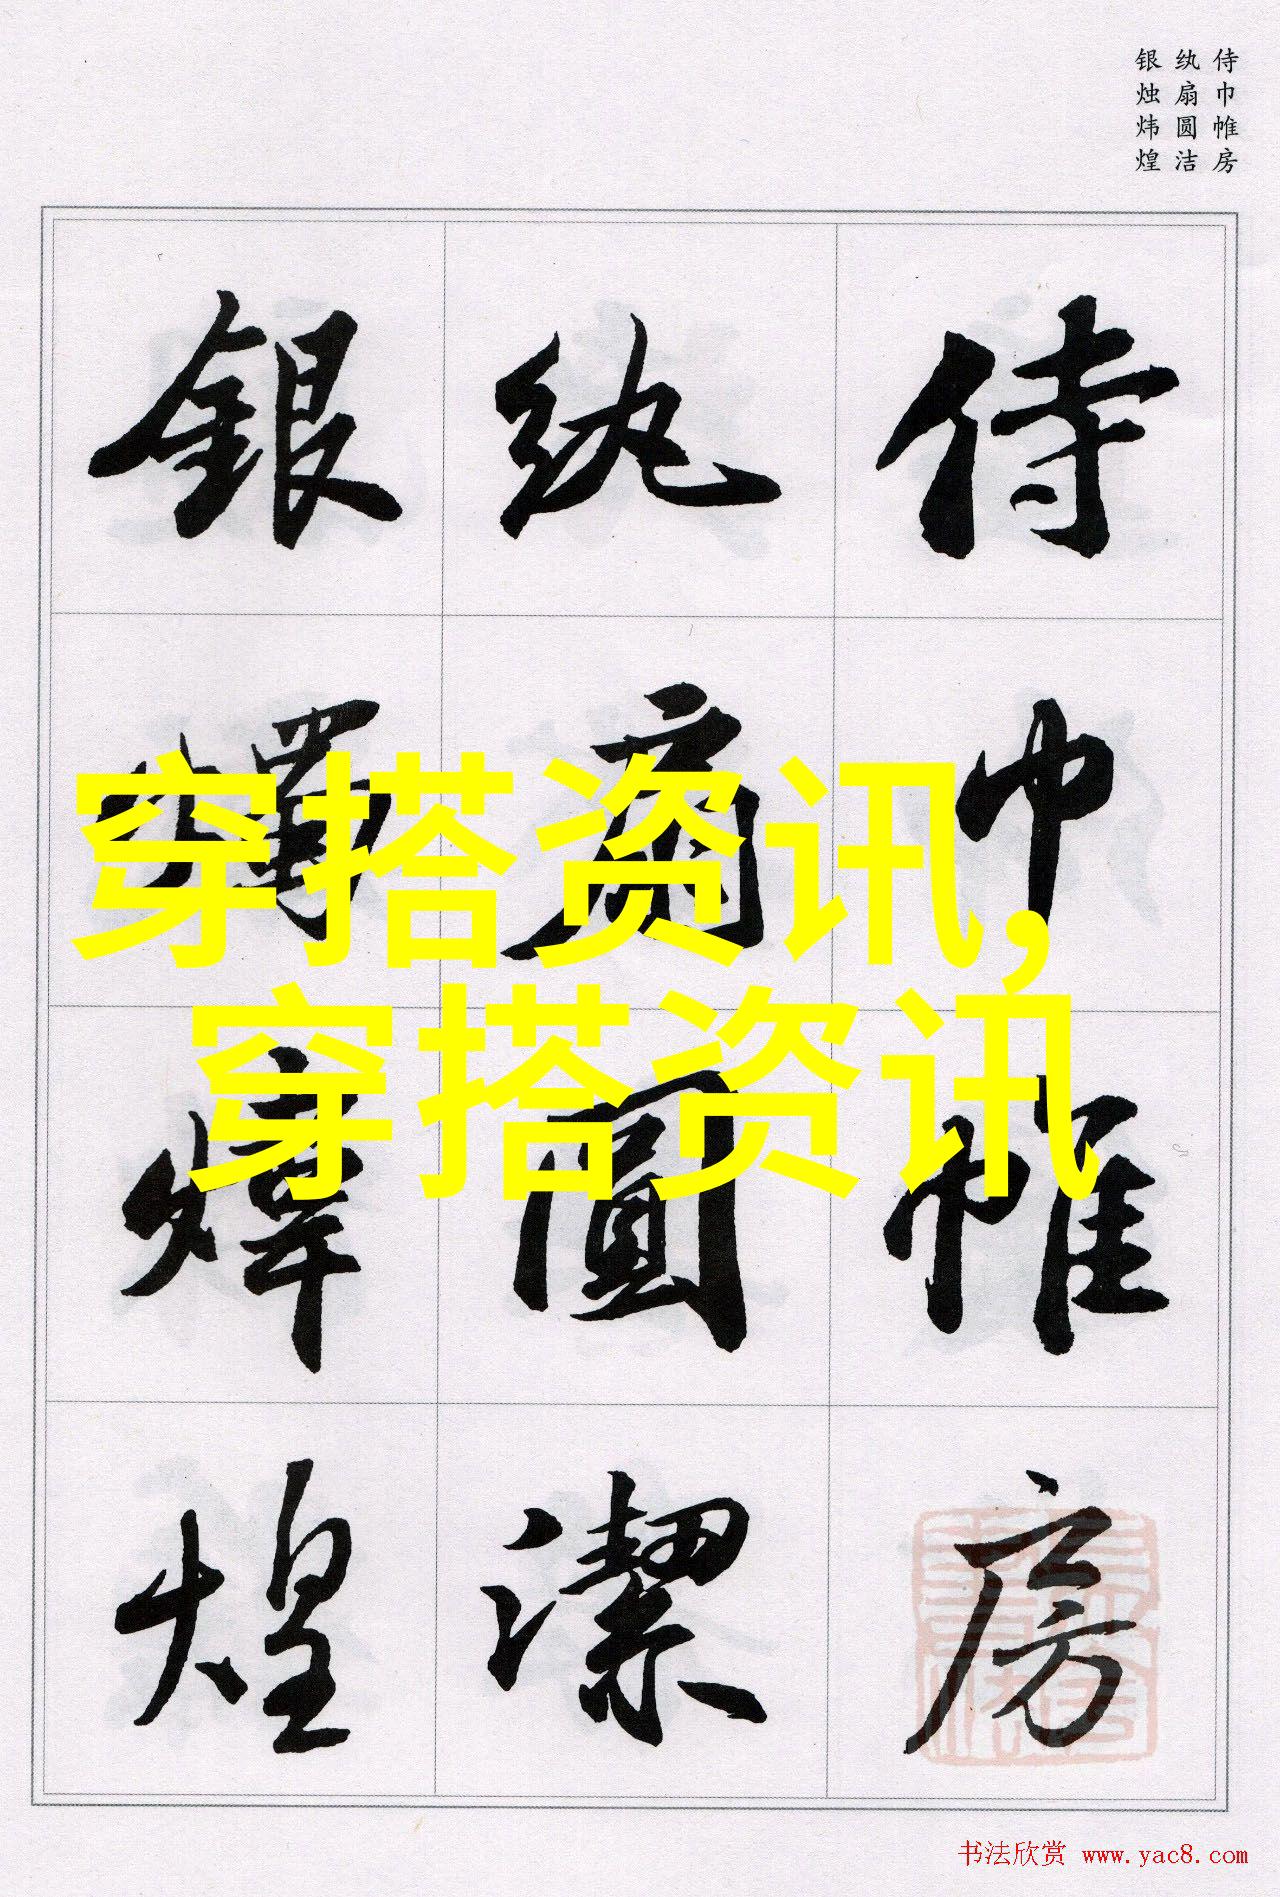 侍巾帷房
纨扇圆洁
银烛炜煌
侍巾帷房
纨扇圓潔
銀燭煒煌
穿搭资讯,
穿搭资讯
书法欣赏 www.yac8.com